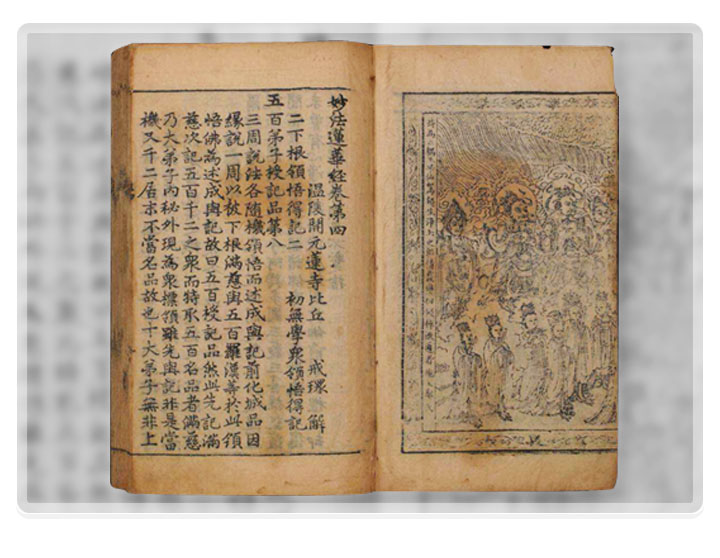 妙法蓮華經卷第四
溫陵開元蓮寺比丘 戒環 解
二下根領悟得記二 初無學衆領悟得記
五百弟子授記品第八
三周說法各隨機領悟而述成與記前化城品因
緣說一周以被下根滿慈與五百羅漢等於此領
悟佛為述成與記故曰五百授記品然此先記滿
慈次記五百千二之衆而特承五百名品者滿慈
乃大弟子內秘外現為衆標領雖先與記非是當
機又千二居末不當名品故也十大弟子無非上